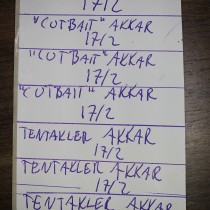 17/2
"CUTBAIT" AKKAR
17/2
"CUTBAIT" AKKAR
17/2
"CUTBAIT" AKKAR
17/2
TENTAKLER AKKAR
17/2
TENTAKLER AKKAR
17/2
TENTAKLER AKKAR